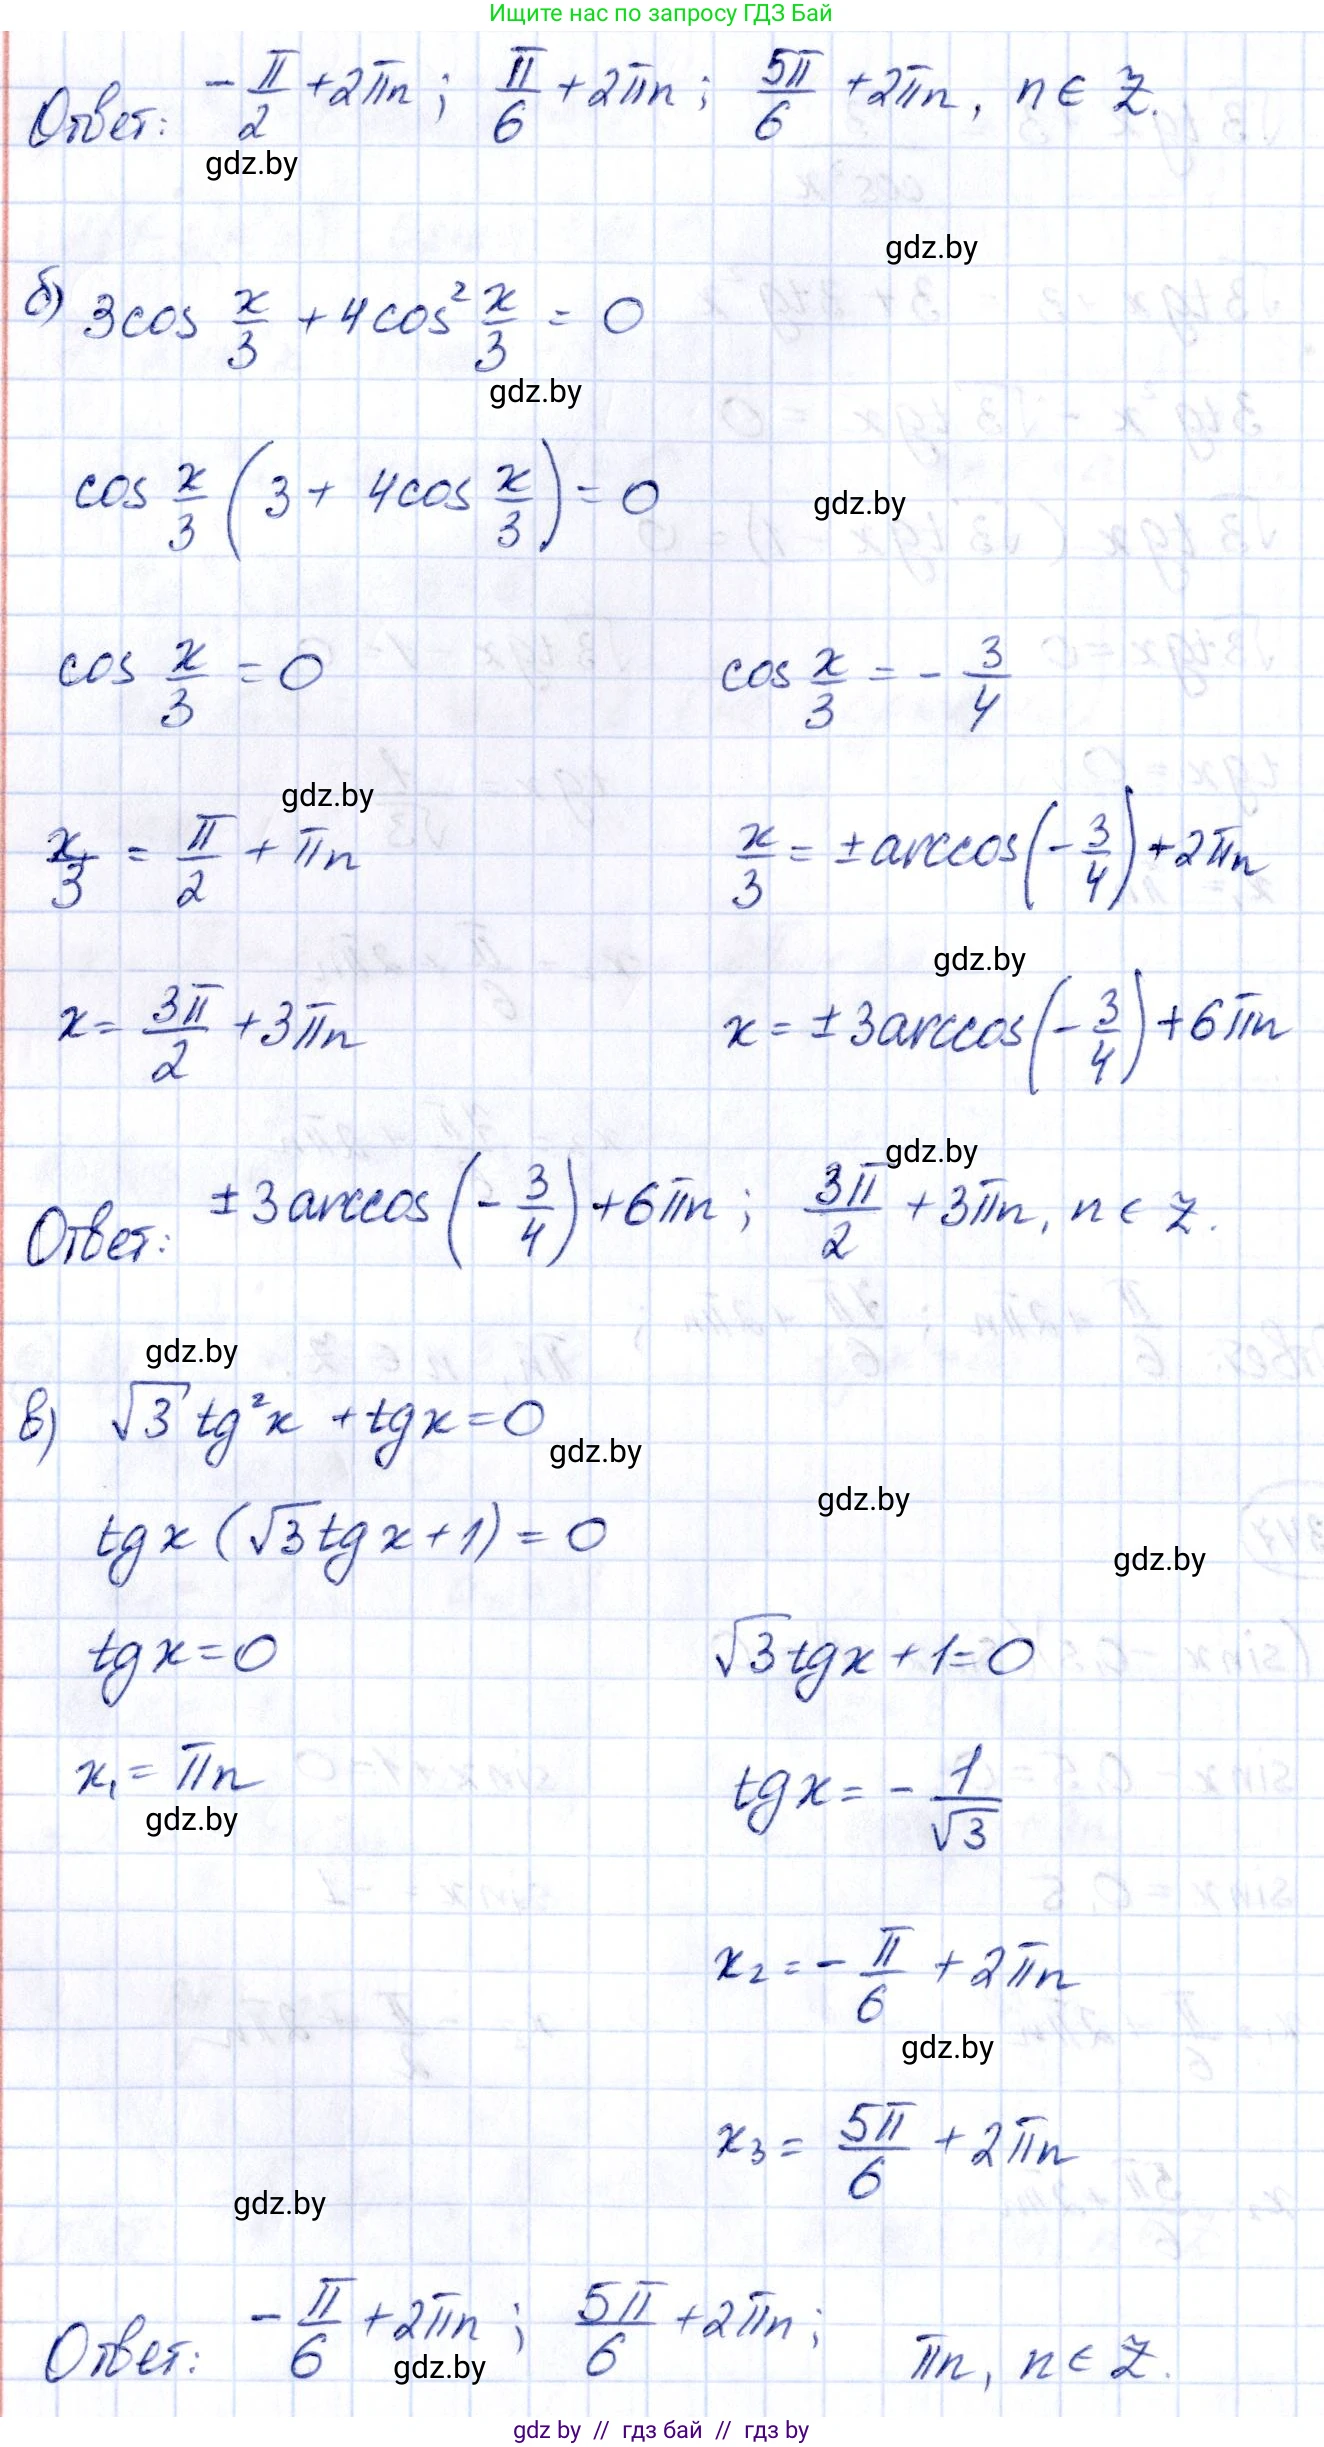 Ищите нас по запросу ГДЗ Бай
Ответ: -π/2 + 2πn; π/6 + 2πn; 5π/6 + 2πn, n ∈ Z.
gdz.by
gdz.by
б) 3cos x/3 + 4cos² x/3 = 0
gdz.by
cos x/3 (3 + 4cos x/3) = 0
gdz.by
cos x/3 = 0 cos x/3 = -3/4
gdz.by
x/3 = π/2 + πn x/3 = ±arccos(-3/4) + 2πn
gdz.by
x = 3π/2 + 3πn x = ±3arccos(-3/4) + 6πn
gdz.by
Ответ: ±3arccos(-3/4) + 6πn; 3π/2 + 3πn, n ∈ Z.
gdz.by
в) √3 tg²x + tgx = 0
gdz.by
gdz.by
tgx (√3tgx + 1) = 0
gdz.by
tgx = 0 √3tgx + 1 = 0
x₁ = πn tgx = -1/√3
gdz.by
x₂ = -π/6 + 2πn
gdz.by
x₃ = 5π/6 + 2πn
gdz.by
Ответ: -π/6 + 2πn; 5π/6 + 2πn; πn, n ∈ Z.
gdz.by
gdz by // гдз бай // гдз by